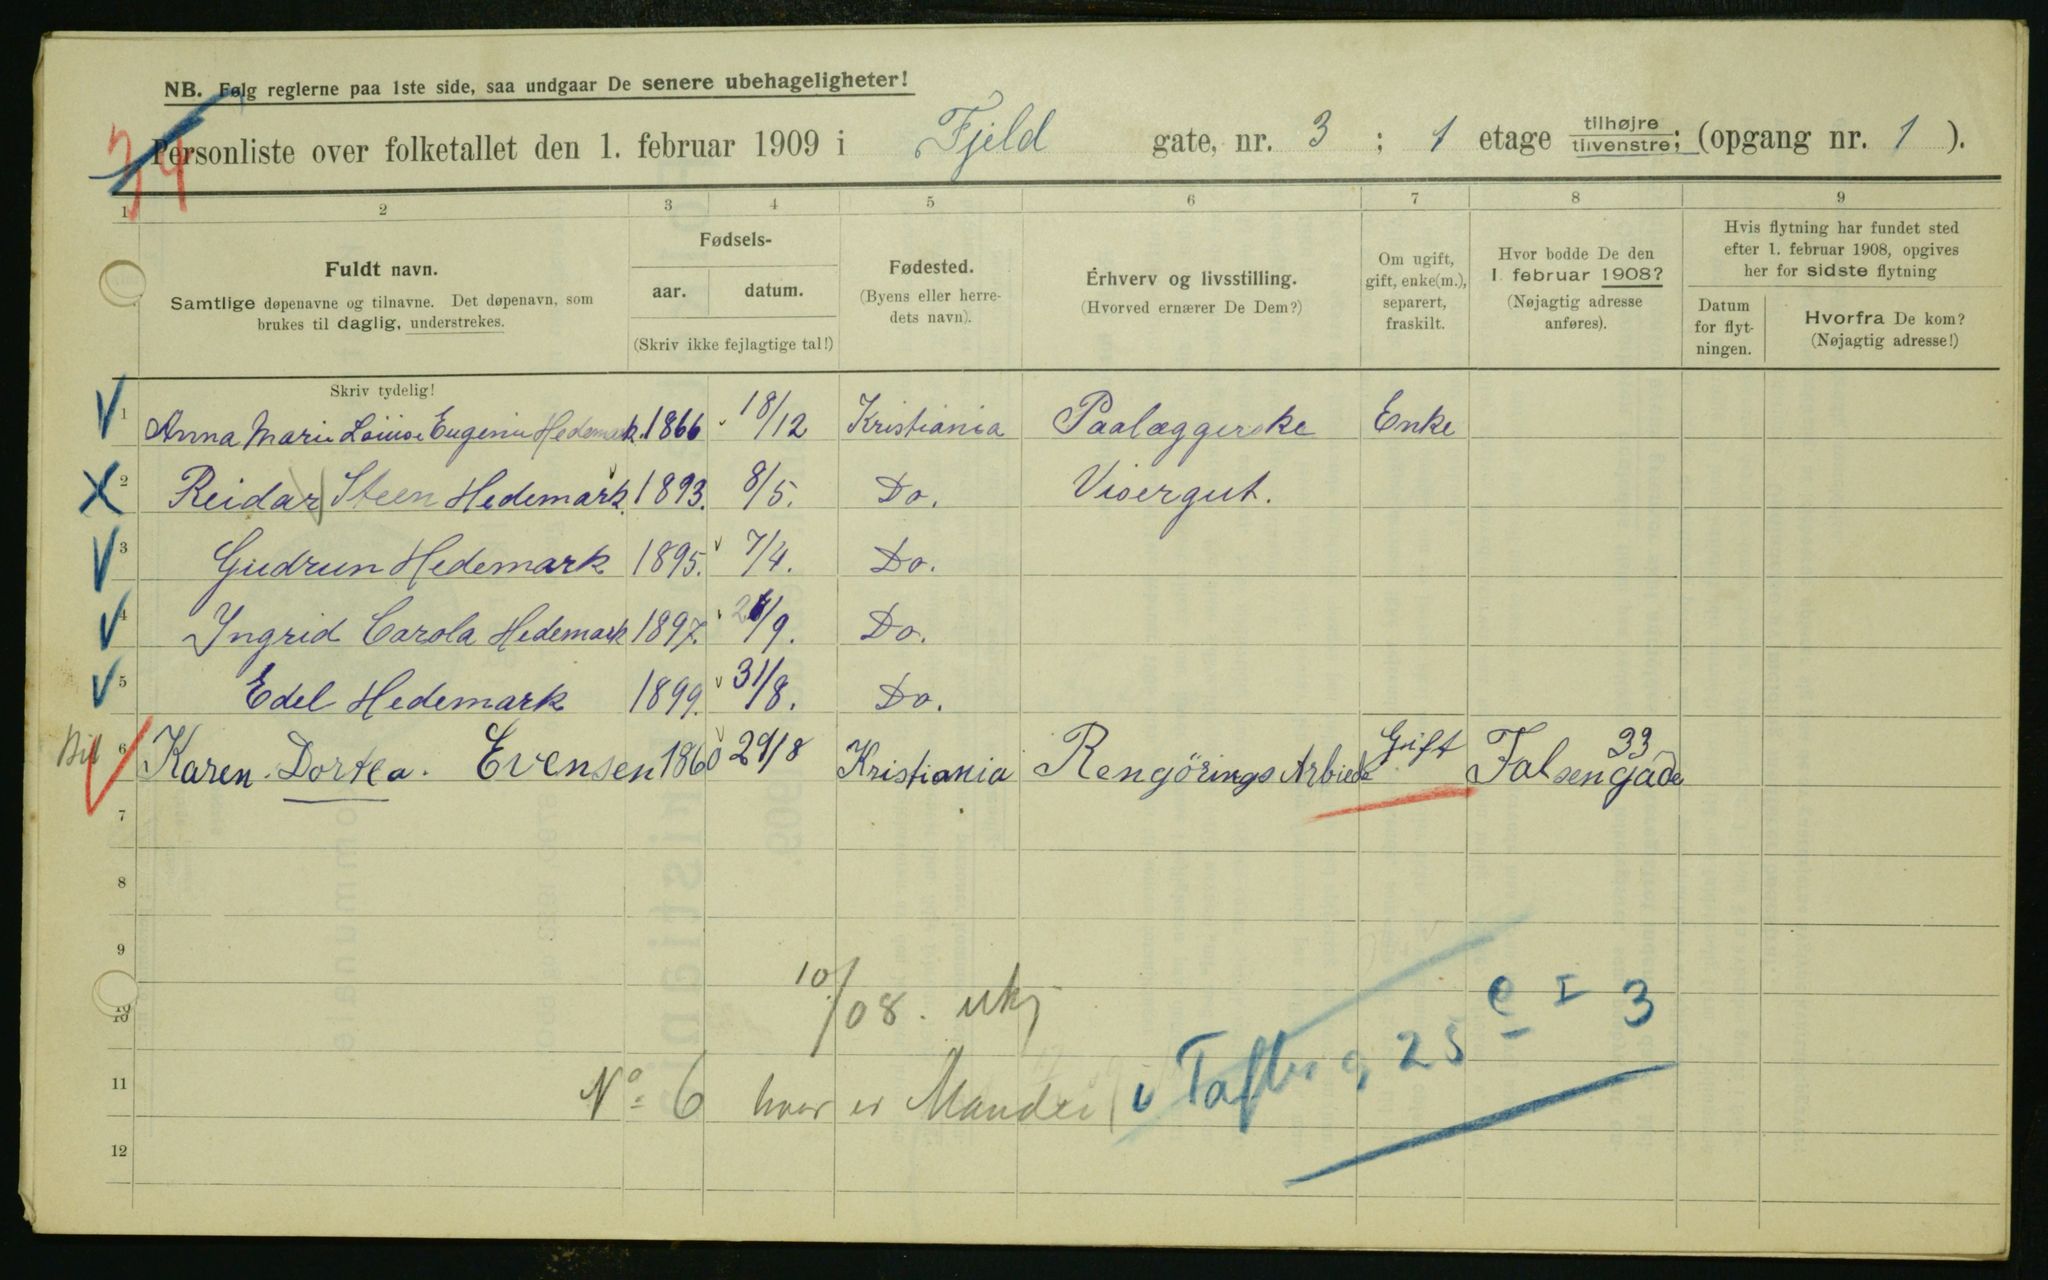 NB. Følg reglerne paa 1ste side, saa undgaar De senere ubehageligheter!
34
Personliste over folketallet den 1. februar 1909 i Fjeld gate, nr. 3 ; 1 etage tilhøjre tilvenstre; (opgang nr. 1 ).
1 2 3 4 5 6 7 8 9
Fuldt navn.
Samtlige døpenavne og tilnavne. Det døpenavn, som
brukes til daglig, understrekes.
Fødsels-
aar. datum.
(Skriv ikke fejlagtige tal!)
Fødested.
(Byens eller herre-
dets navn).
Erhverv og livsstilling.
(Hvorved ernærer De Dem?)
Om ugift,
gift, enke(m.),
separert,
fraskilt.
Hvor bodde De den
1. februar 1908?
(Nøjagtig adresse
anføres).
Hvis flytning har fundet sted
efter 1. februar 1908, opgives
her for sidste flytning
Datum
for flyt-
ningen.
Hvorfra De kom?
(Nøjagtig adresse!)
Skriv tydelig!
1 Anna Marie Louise Eugenie Hedemark. 1866 18/12 Kristiania Paalæggerske Enke
2 Reidar Steen Hedemark. 1893. 8/5. Do. Visergut.
3 Gudrun Hedemark 1895. 7/4. Do.
4 Ingrid Carola Hedemark 1897. /9. Do.
5 Edel Hedemark 1899. 31/8. Do.
6 Karen. Dortea. Evensen 1860 29/8 Kristiania Rengörings Arbiede Gift Falsengade 33
7
8
9
10
10/08.
11
No 6 hvor er Manden
i 25 e I 3
12